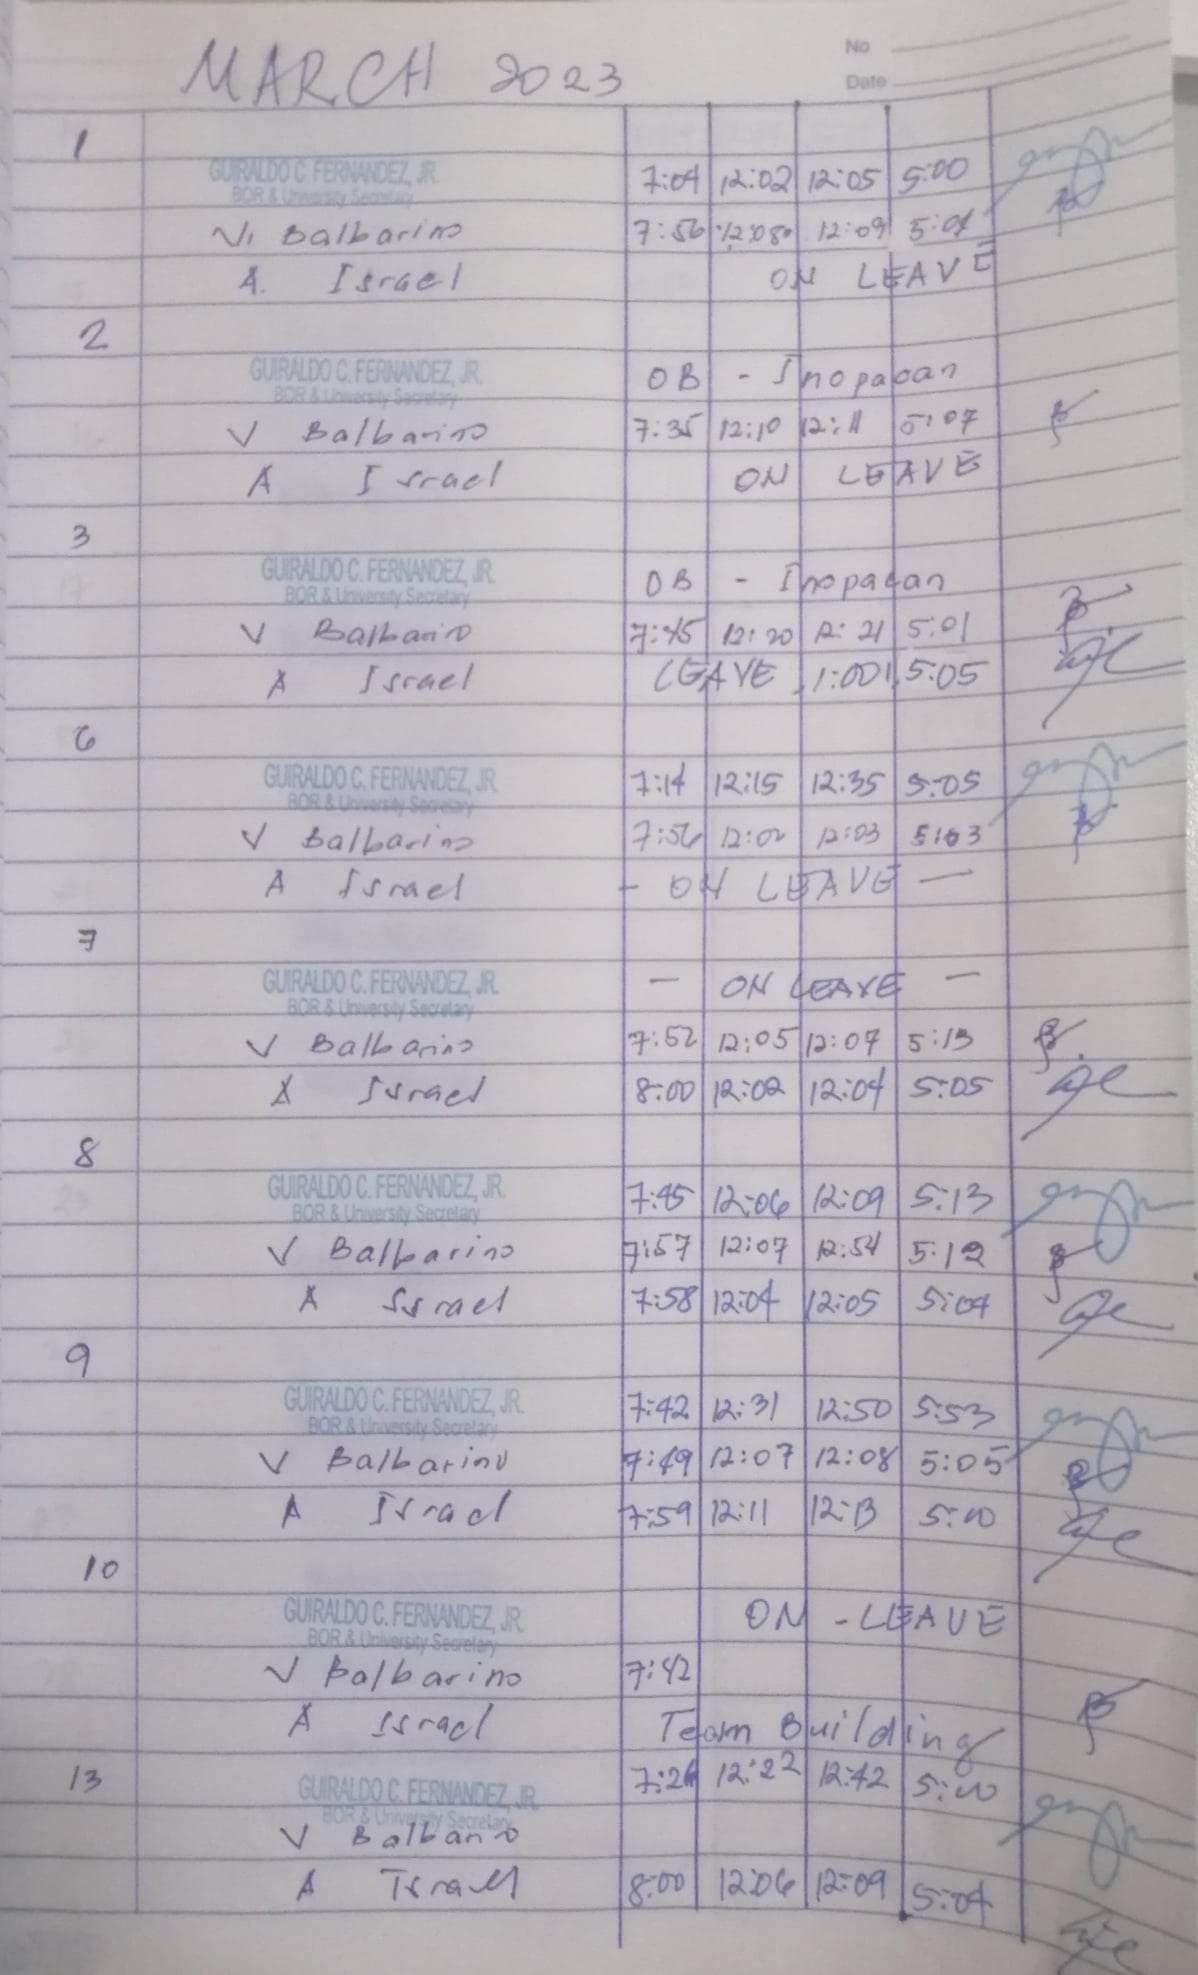 No
Date
MARCH 2023
1
GUIRALDO C. FERNANDEZ, JR. 7:04 12:02 12:05 5:00
BOR & University Secretary
V. Balbarino 7:56 12:08 12:09 5:01
A. Israel ON LEAVE
2
GUIRALDO C. FERNANDEZ, JR. OB - Inopacan
BOR & University Secretary
V Balbarino 7:35 12:10 12:11 5:07
A Israel ON LEAVE
3
GUIRALDO C. FERNANDEZ, JR. OB - Inopacan
BOR & University Secretary
V Balbarino 7:45 12:20 12:21 5:01
A Israel LEAVE 1:00 5:05
6
GUIRALDO C. FERNANDEZ, JR. 7:14 12:15 12:35 5:05
BOR & University Secretary
V Balbarino 7:56 12:02 12:03 5:03
A Israel - ON LEAVE -
7
GUIRALDO C. FERNANDEZ, JR. - ON LEAVE -
BOR & University Secretary
V Balbarino 7:52 12:05 12:07 5:13
A Israel 8:00 12:02 12:04 5:05
8
GUIRALDO C. FERNANDEZ, JR. 7:45 12:06 12:09 5:13
BOR & University Secretary
V Balbarino 7:57 12:07 12:54 5:12
A Israel 7:58 12:04 12:05 5:04
9
GUIRALDO C. FERNANDEZ, JR. 7:42 12:31 12:50 5:53
BOR & University Secretary
V Balbarino 7:49 12:07 12:08 5:05
A Israel 7:59 12:11 12:13 5:00
10
GUIRALDO C. FERNANDEZ, JR. ON - LEAVE
BOR & University Secretary
V Balbarino 7:42
A Israel Team Building
13
GUIRALDO C. FERNANDEZ, JR. 7:26 12:22 12:42 5:00
BOR & University Secretary
V Balbarino
A Israel 8:00 12:06 12:09 5:04